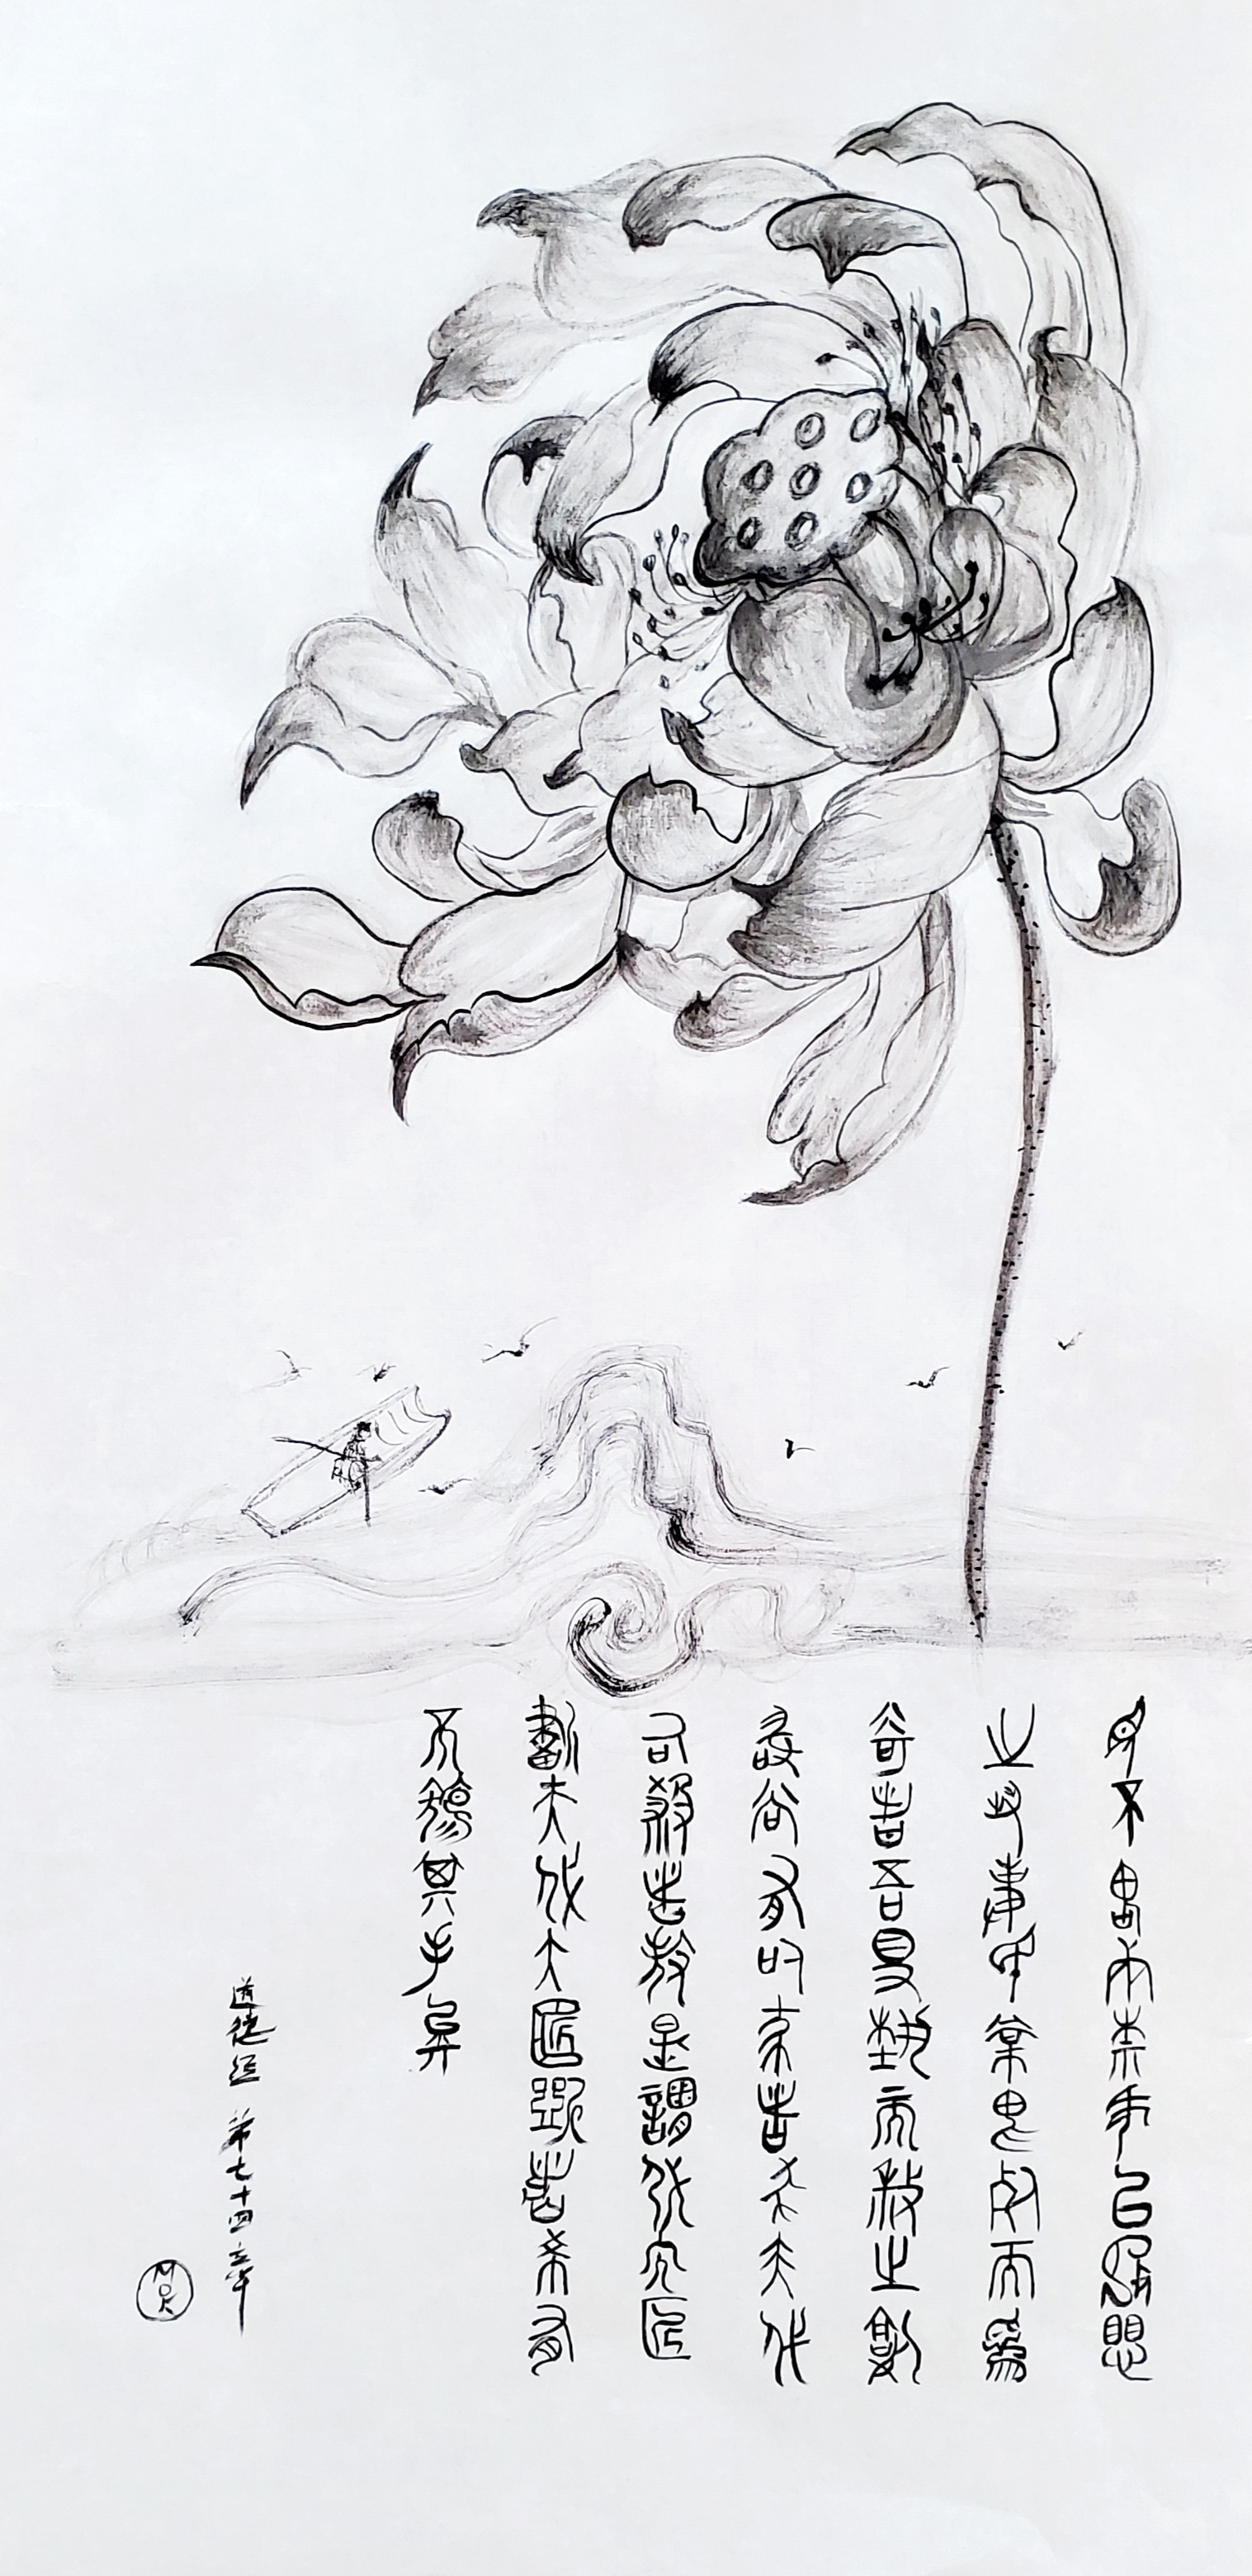 民不畏死柰何以死懼
之若使民常畏死而為
奇者吾得執而殺之孰
敢常有司殺者殺夫代
司殺者殺是謂代大匠
斲夫代大匠斲者希有
不傷其手矣
道德經 第七十四章
MOK